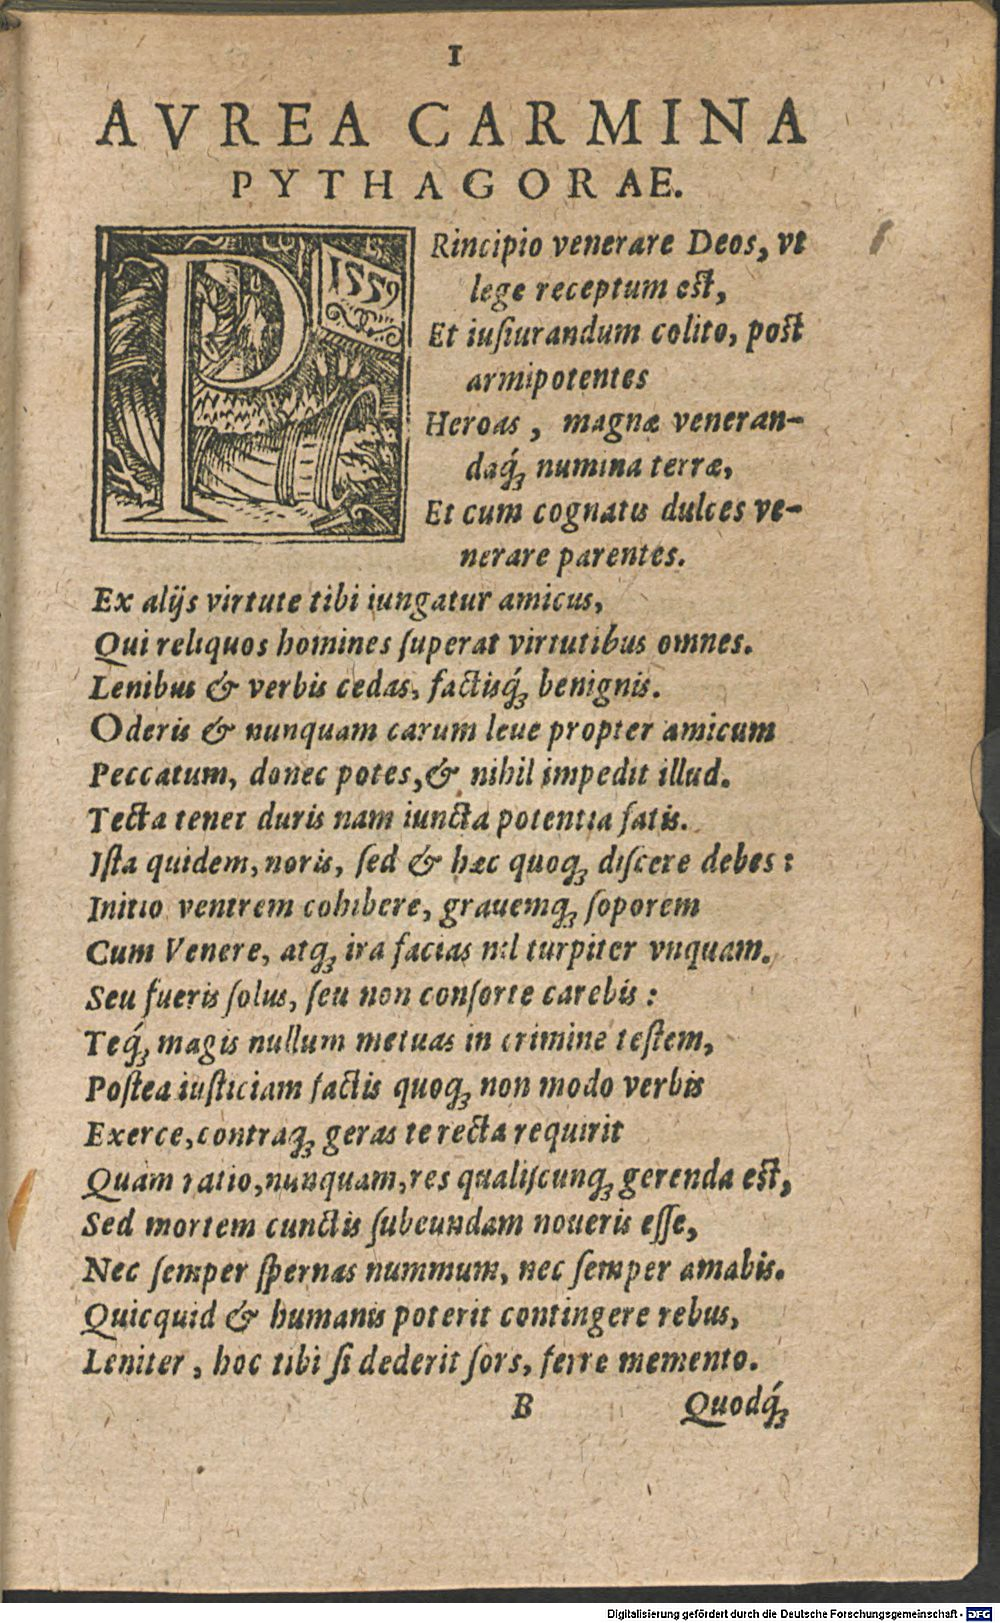 1
AVREA CARMINA
PYTHAGORAE.
1559
PRincipio venerare Deos, vt
lege receptum est,
Et iuſiurandum colito, post
armipotentes
Heroas, magnæ veneran-
daq́ꝫ numina terræ,
Et cum cognatis dulces ve-
nerare parentes.
Ex alijs virtute tibi iungatur amicus,
Qui reliquos homines ſuperat virtutibus omnes.
Lenibus & verbis cedas, factisq́ꝫ benignis.
Oderis & nunquam carum leue propter amicum
Peccatum, donec potes, & nihil impedit illud.
Tecta tenet duris nam iuncta potentia fatis.
Iſta quidem, noris, ſed & hæc quoqꝫ diſcere debes:
Initio ventrem cohibere, grauemqꝫ ſoporem
Cum Venere, atqꝫ ira facias nil turpiter vnquam.
Seu fueris ſolus, ſeu non conſorte carebis:
Teq́ꝫ magis nullum metuas in crimine teſtem,
Poſtea iuſticiam factis quoqꝫ non modo verbis
Exerce, contraqꝫ geras te recta requirit
Quam ratio, nunquam, res qualiſcunqꝫ gerenda est,
Sed mortem cunctis ſubeundam noueris eſſe,
Nec ſemper ſpernas nummum, nec ſemper amabis.
Quicquid & humanis poterit contingere rebus,
Leniter, hoc tibi ſi dederit ſors, ferre memento.
B Quodq́ꝫ
Digitalisierung gefördert durch die Deutsche Forschungsgemeinschaft - DFG